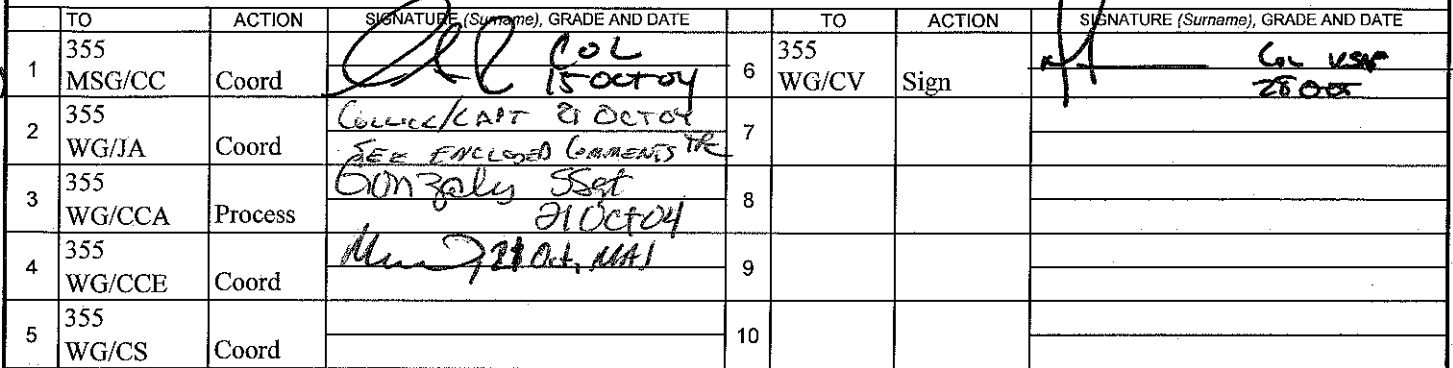 TO ACTION SIGNATURE (Surname), GRADE AND DATE TO ACTION SIGNATURE (Surname), GRADE AND DATE
1 355 MSG/CC Coord COL 15 OCT 04
6 355 WG/CV Sign Col USAF 28 Oct
2 355 WG/JA Coord CAPT 21 OCT 04
SEE ENCLOSED COMMENTS
7
3 355 WG/CCA Process Gonzalez SSgt
21 Oct 04
8
4 355 WG/CCE Coord 21 Oct, MAJ
9
5 355 WG/CS Coord
10